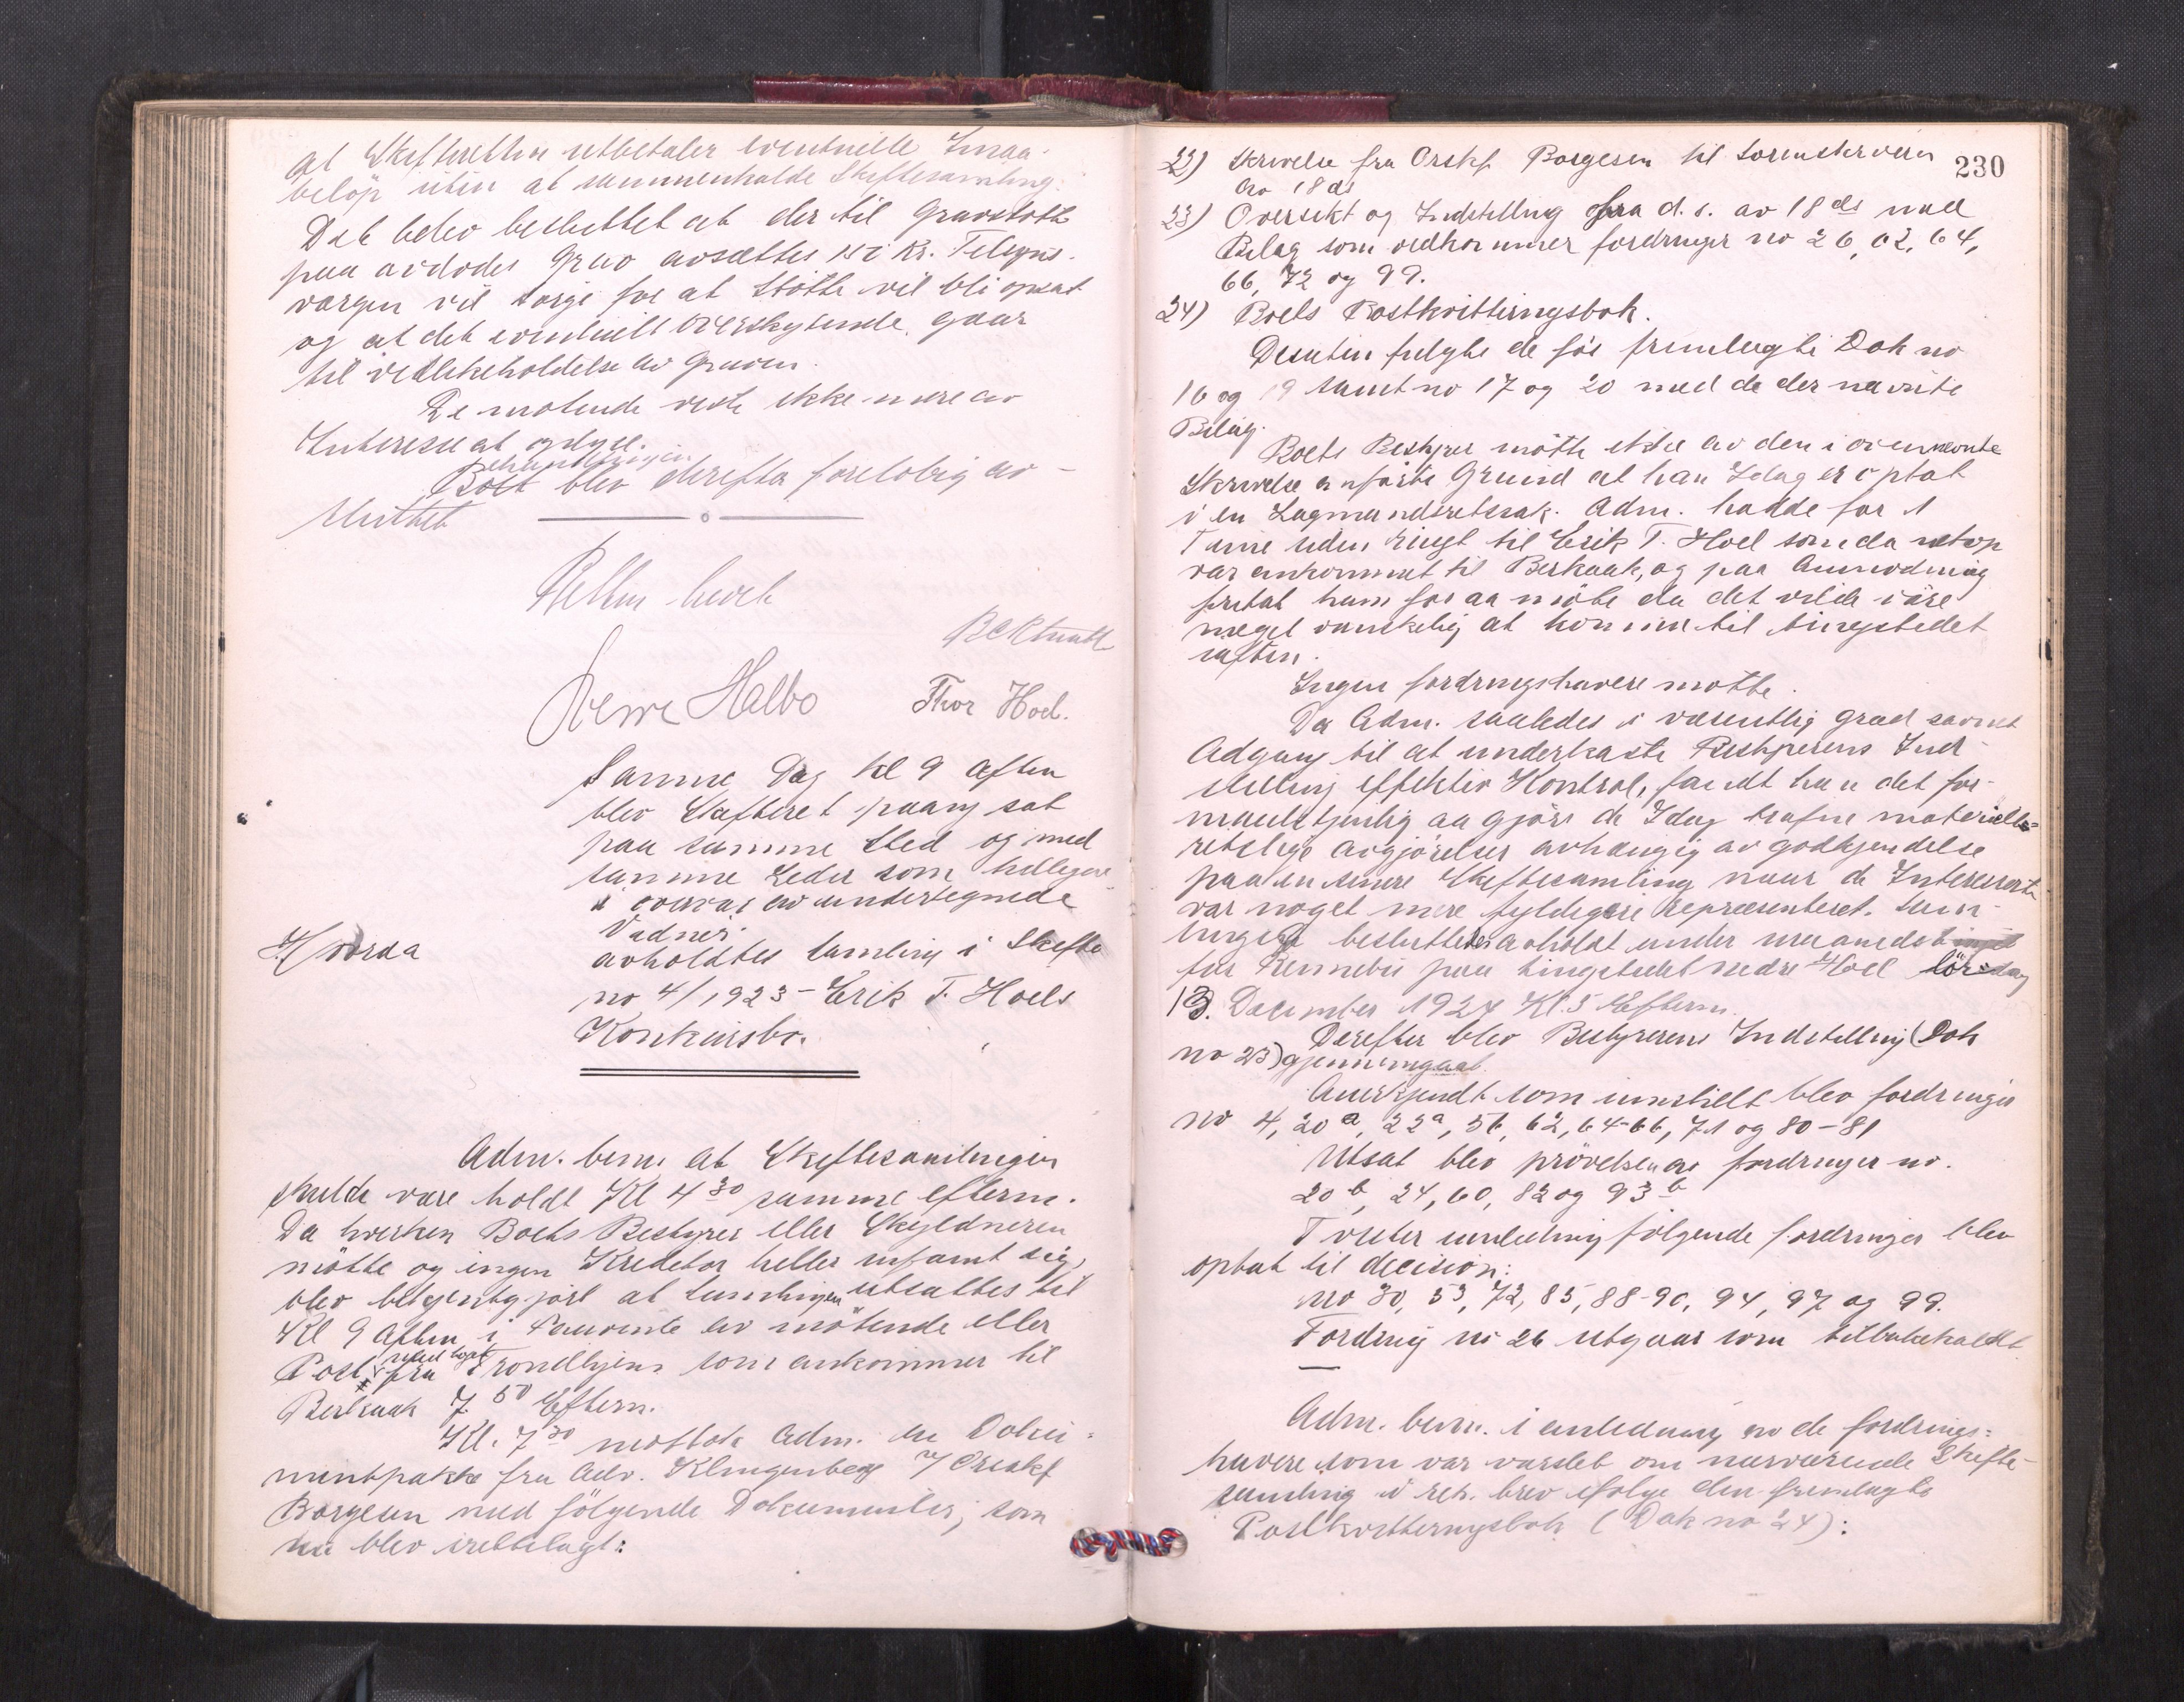 at Skifteretten utbetaler eventuelle Smaa-
beløp uten at sammenkalde Skiftesamling.
Det blev besluttet at der til Gravstøtte
paa avdødes Grav avsættes Kr.
vergen vil sørge for at Støtte vil bli opsat
og at det eventuelt overskytende gaar
til vedlikeholdelse av Graven.
De møtende visste ikke mere av
Interesse at oplyse.
Behandlingen
Boet blev derefter foreløbig av-
sluttet
Retten hævet
Halbo Thor Hoel.
Samme Dag Kl 9 aften
blev Skifteret paany sat
paa samme Sted og med
samme Leder som tidligere
i overvær av undertegnede
Vidner.
Hvorda
avholdtes Samling i Skifte
no 4/1923 - Erik T. Hoels
Konkursbo.
Adm. bem. at Skiftesamlingen
skulde være holdt Kl 4 30 samme efterm.
Da hverken Boets Bestyrer eller Skyldneren
møtte og ingen Kreditor heller infandt sig,
blev bekjentgjort at Samlingen utsattes til
Kl 9 Aften i Paavente av møtende eller
Post med toget fra Trondhjem som ankommer til
Berkaak 7 50 Efterm.
Kl. 7 30 mottok Adm. en Doku-
mentpakke fra Adv. Klingenberg v/ Orskf
Borgesen med følgende Dokumenter, som
nu blev irettelagt:
230
22) Skrivelse fra Orskf. Borgesen til Sorenskriveren
av 18 ds
23) Oversikt og Indstilling fra d. s. av 18 ds med
Bilag som vedkommer fordringer no 26, 62, 64,
66, 72 og 99.
24) Boets Postkvitteringsbok.
Desuten fulgte de før fremlagte Dok no
16 og 19 samt no 17 og 20 med de der nævnte
Bilag.
Boets Bestyrer møtte ikke av den i ovennævnte
Skrivelse anførte Grund at han Idag er optat
i en Lagmandsretssak. Adm. hadde for 1
Time siden ringt til Erik T. Hoel som da netop
var ankommet til Berkaak, og paa Anmodning
fritat ham for aa møte da det vilde være
meget vanskelig at komme til tingstedet
iaften.
Ingen fordringshavere møtte.
Da Adm. saaledes i væsentlig grad savnet
Adgang til at underkaste Bestyrerens Ind-
stilling effektiv Kontrol, fandt han det for-
maalstjenlig aa gjøre de Idag trufne materielle-
retslige avgjørelser avhængig av godkjendelse
paa en senere Skiftesamling naar de Interesserte
var noget mere fyldigere repræsenteret. Sam-
lingen besluttedes avholdt under
for Rennebu paa tingstedet nedre Hoel lørdag
13. December 1924 Kl. 5 Efterm.
Derefter blev Bestyrerens Indstilling (Dok
no 23) gjennemgaat.
Anerkjendt som innstilt blev fordringer
no 4, 20 a, 22 a, 56, 62, 64-66, 71 og 80-81
Utsat blev prøvelsen av fordringer no.
20 b, 24, 60, 82 og 93 b
Tvister anledning følgende fordringer blev
optat til decision:
no 30, 53, 72, 85, 88-90, 94, 97 og 99.
Fordring no 26 utgaar som tilbakekaldt.
Adm. bem. i anledning av de fordrings-
havere som var varslet om nærværende Skifte-
samling i rek. brev ifølge den fremlagte
Postkvitteringsbok (Dok no 24):